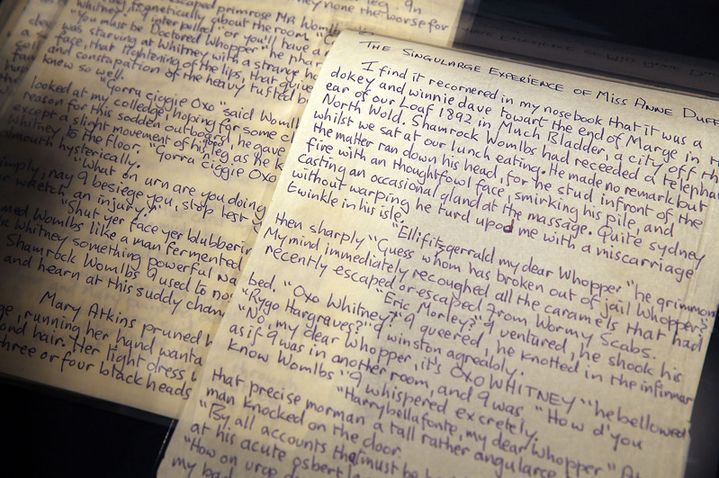 leg. In
escaped primrose MR Womlb
they none the worse for
getically about the room
interpelled or you'll have a
"You must be Doctored Whopper" he
was starving at Whitney with a strange
face, that tightening of the lips, that
and constapation of the heavy tufted
knew so well.
"Gorra ciggie Oxo" said Womlb
looked at my colledge, hoping for some
reason for this sodden outboard, he gave
except a slight movement of his leg as he
Whitney to the floor. "Gorra ciggie Oxo
almouth hysterically.
"What on urn are you doing
imply, nay I besiege you, stop
wretch, an injury."
"Shut yer face yer blubberin
Womlbs like a man fermented
Whitney something powerful
Shamrock Womlbs I used to
and hearn at this suddy chan
Mary Atkins pruned
running her hand wanta
hair. Her tight dress
three or four black heads
THE SINGULARGE EXPERIENCE OF MISS ANNE DUFF
I find it recornered in my nosebook that it was a
dokey and winnie dave towart the end of Marge in the
ear of our Loaf 1892 in Much Bladder, a city off the
North Wold. Shamrock Womlbs had receeded a telephart
whilst we sat at our lunch eating. He made no remark but
the matter ran down his head, for he stud infront of the
fire with an thoughtfowl face, smirking his pile, and
casting an occasional gland at the massage. Quite sydney
without warping he turd upod me with a miscarriage
twinkle in his isle.
"Ellifitzgerrald my dear Whopper" he grimmon
then sharply "Guess whom has broken out of jail Whopper?
My mind immediately recoughed all the caramels that had
recently escaped or escaped from Wormy Scabs.
"Eric Morley?" I ventured, he shook his
bed. "Oxo Whitney?" I queered, he knotted in the infirmar
"Rygo Hargraves?" I winston agreably.
"No, my dear Whopper, it's OXO WHITNEY" he bellowed
as if I was in another room, and I was. "How d'you
know Womlbs" I whispered excretely.
"Harrybellafonte, my dear Whopper" At
that precise morman a tall rather angularce
man knocked on the door.
"By all accounts that must be
at his acute osbert
"How on urcp
my bad